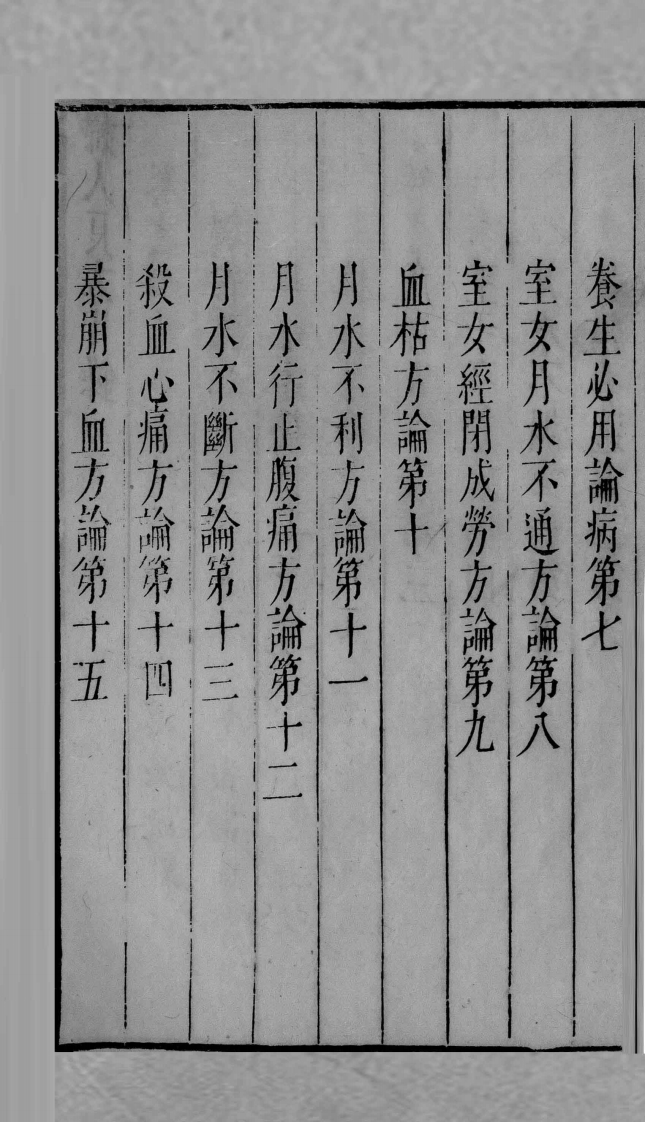 養生必用論病第七
室女月水不通方論第八
室女經閉成勞方論第九
血枯方論第十
月水不利方論第十一
月水行止腹痛方論第十二
月水不斷方論第十三
殺血心痛方論第十四
暴崩下血方論第十五